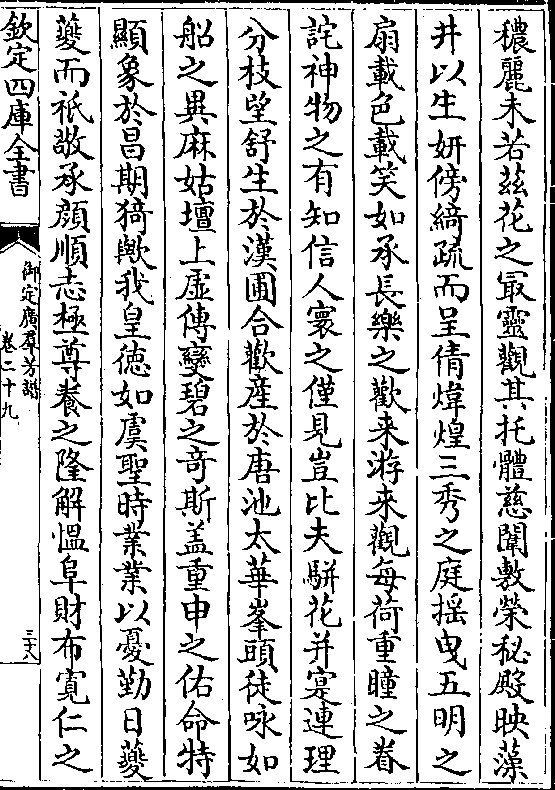 穠麗未若茲花之最靈觀其托體慈闈敷榮秘殿映藻
井以生妍傍綺疏而呈倩煒煌三秀之庭揺曳五明之
扇載色載笑如承長樂之歡来游来觀每荷重瞳之眷
詫神物之有知信人寰之僅見豈比夫駢花并寔連理
分枝望舒生於漢圃合歡産於唐池太華峯頭徒咏如
船之異麻姑壇上虚傳變碧之竒斯盖重申之佑命特
顯象於昌期猗歟我皇徳如虞聖時業業以憂勤日夔
夔而祗敬承顔順志極尊養之隆解愠阜財布寛仁之
欽定四庫全書
御定廣羣芳譜
卷二十九
三十八